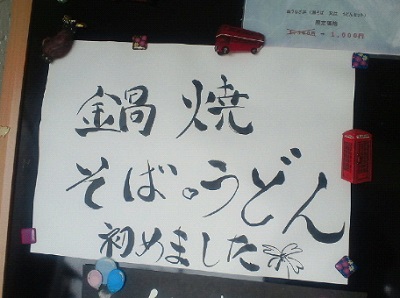 鍋焼
そば。うどん
初めました
限定価格
1,000円